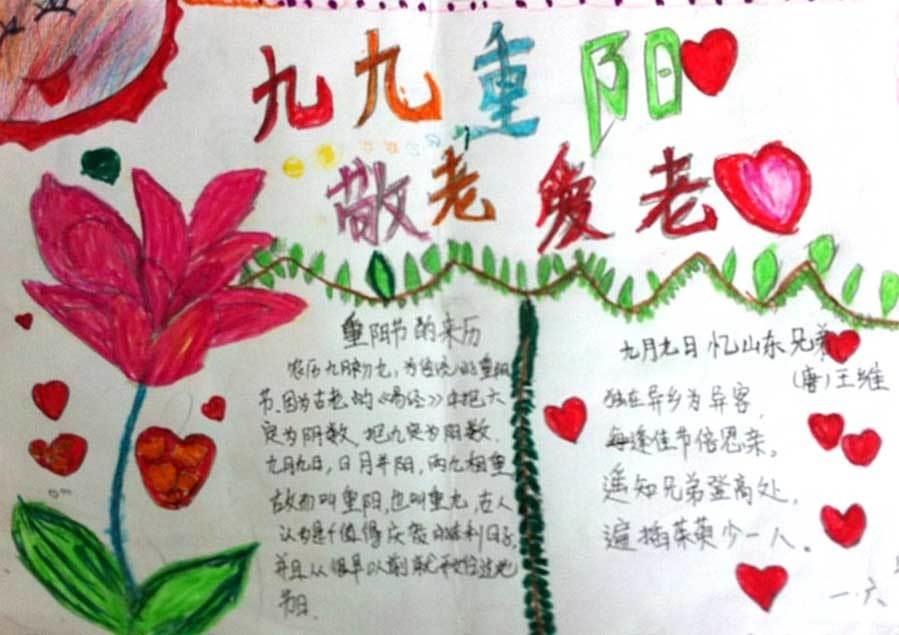 九九重阳
敬老爱老
重阳节的来历
农历九月初九，为传统的重阳
节。因为古老的《易经》中把六
定为阴数，把九定为阳数，
九月九日，日月并阳，两九相重，
故而叫重阳，也叫重九，古人
认为是个值得庆贺的吉利日子，
并且从很早以前就开始过此
节日。
九月九日忆山东兄弟
（唐）王维
独在异乡为异客，
每逢佳节倍思亲。
遥知兄弟登高处，
遍插茱萸少一人。
一.六